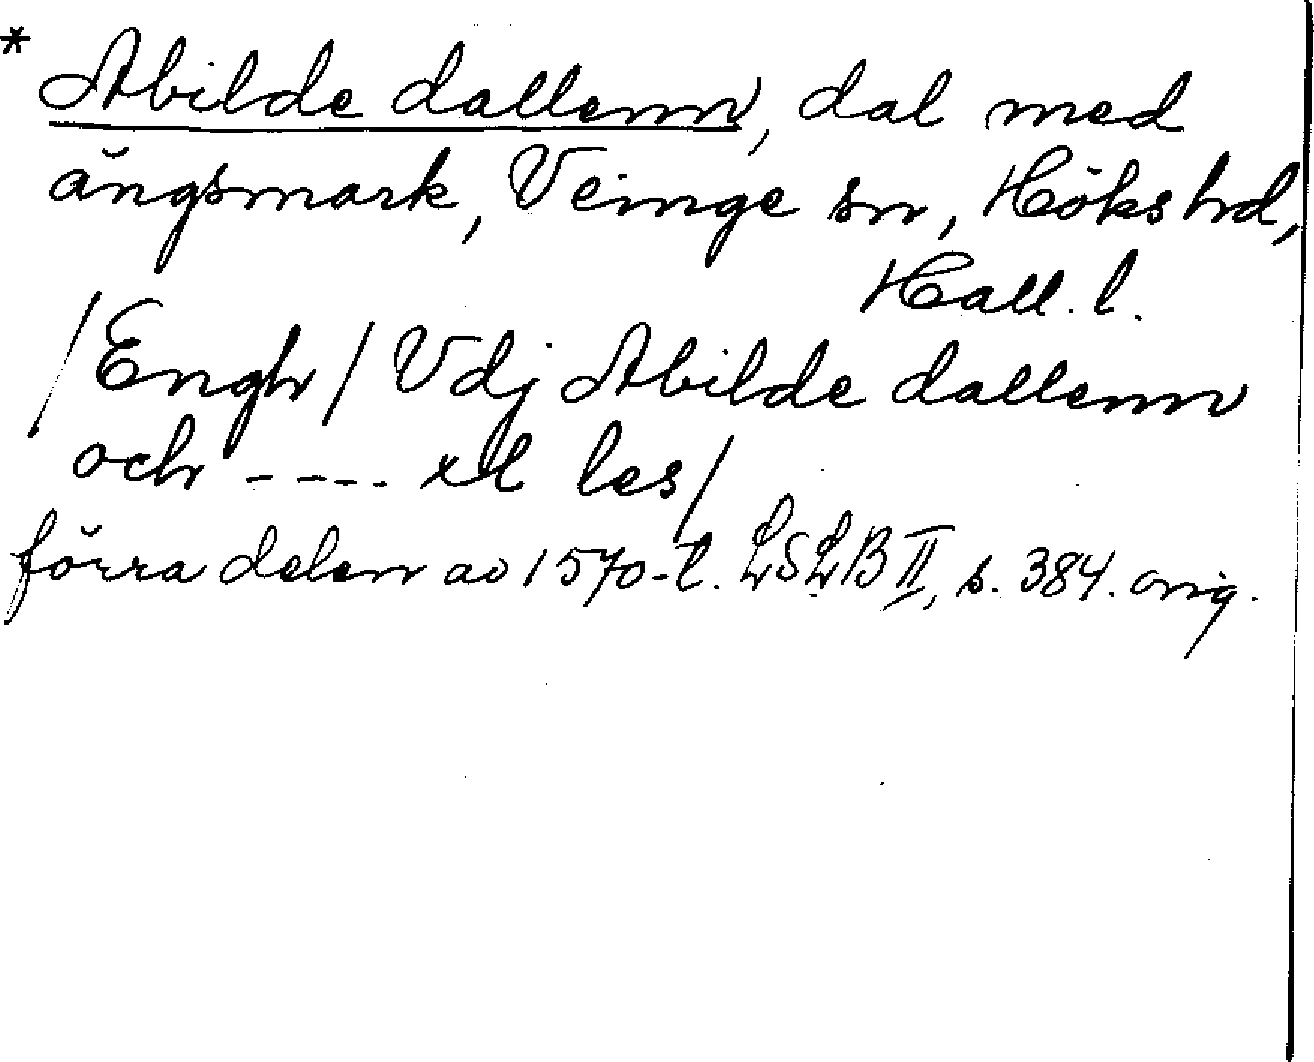 * Abilde dallenn, dal med
ängsmark, Veinge sn, Höks hd,
Hall. l.
/Engh/ Vdj Abilde dallenn
och ---- xl les/
förra delen av 1570-t. LSLB II, s. 384. orig.